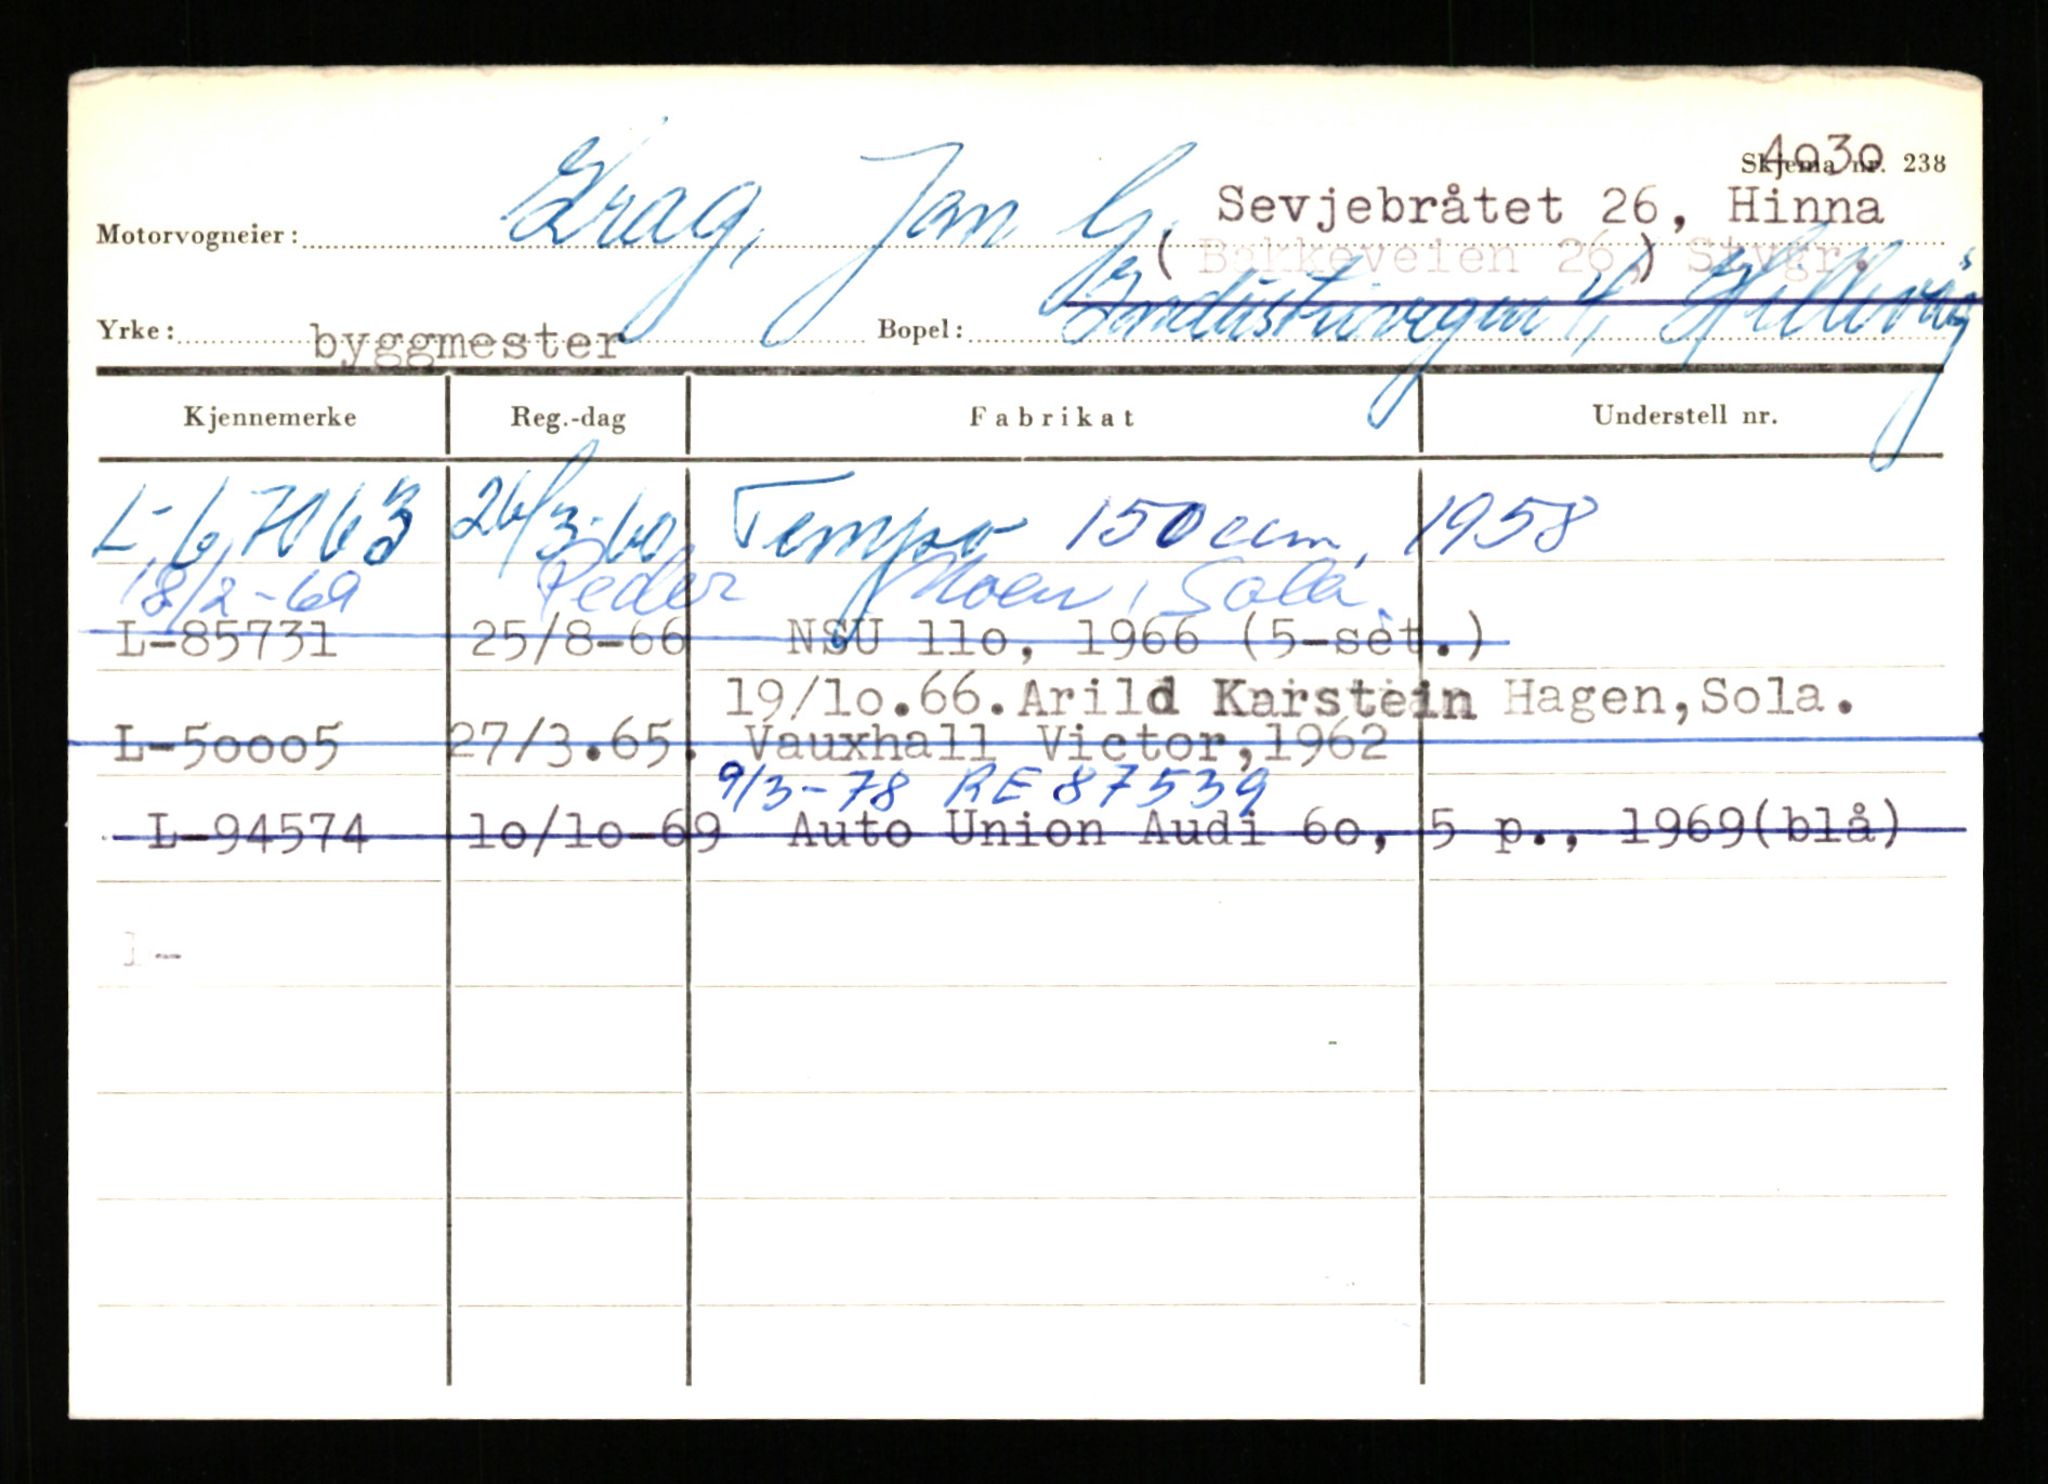 4030
Skjema nr. 238
Sevjebråtet 26, Hinna
Motorvogneier: Grag, Jan G.
(Bakkeveien 26) Stvgr.
Yrke: byggmester Bopel: Industrivegen 4, Hillevåg
Kjennemerke Reg.-dag Fabrikat Understell nr.
L-67063 26/3-60 Tempo 150 ccm, 1958
18/2-69 Peder Moen, Sola.
L-85731 25/8-66 NSU 110, 1966 (5-set.)
19/10.66. Arild Karstein Hagen, Sola.
L-50005 27/3.65. Vauxhall Victor, 1962
9/3-78 RE 87539
L-94574 10/10-69 Auto Union Audi 60, 5 p., 1969(blå)
L-